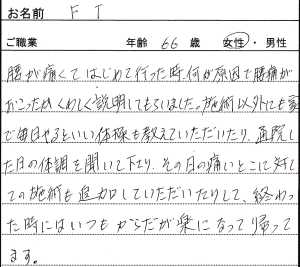 お名前 F T
ご職業 年齢 66 歳 女性・男性
腰が痛くてはじめて行った時、何が原因で腰痛が
おこったかくわしく説明してもらいました。施術以外にも家
で毎日やるといい体操も教えていただいたり、通院し
た日の体調を聞いて下さり、その日の痛いとこに対し
ての施術も追加していただいたりして、終わっ
た時にはいつもからだが楽になって帰って
ます。